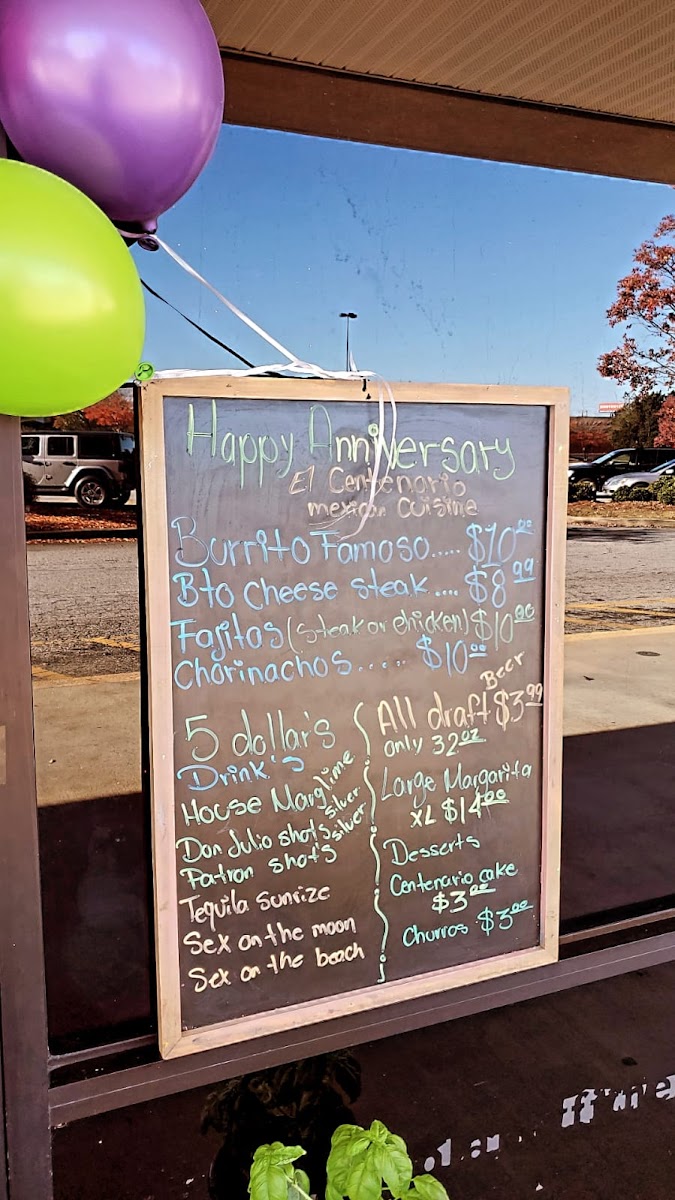 Happy Anniversary
El Centenario
mexican Cuisine
Burrito Famoso..... $10.00
Bto Cheese steak.... $8.99
Fajitas (steak or chicken) $10.00
Chorinachos..... $10.00
5 dollar's
Drink's
House Marg lime
Don Julio shot's silver
Patron shot's silver
Tequila Sunrize
Sex on the moon
Sex on the beach
All draft Beer $3.99
only 32oz
Large Margarita
XL $14.00
Desserts
Centenario cake
$3.00
Churros $3.00